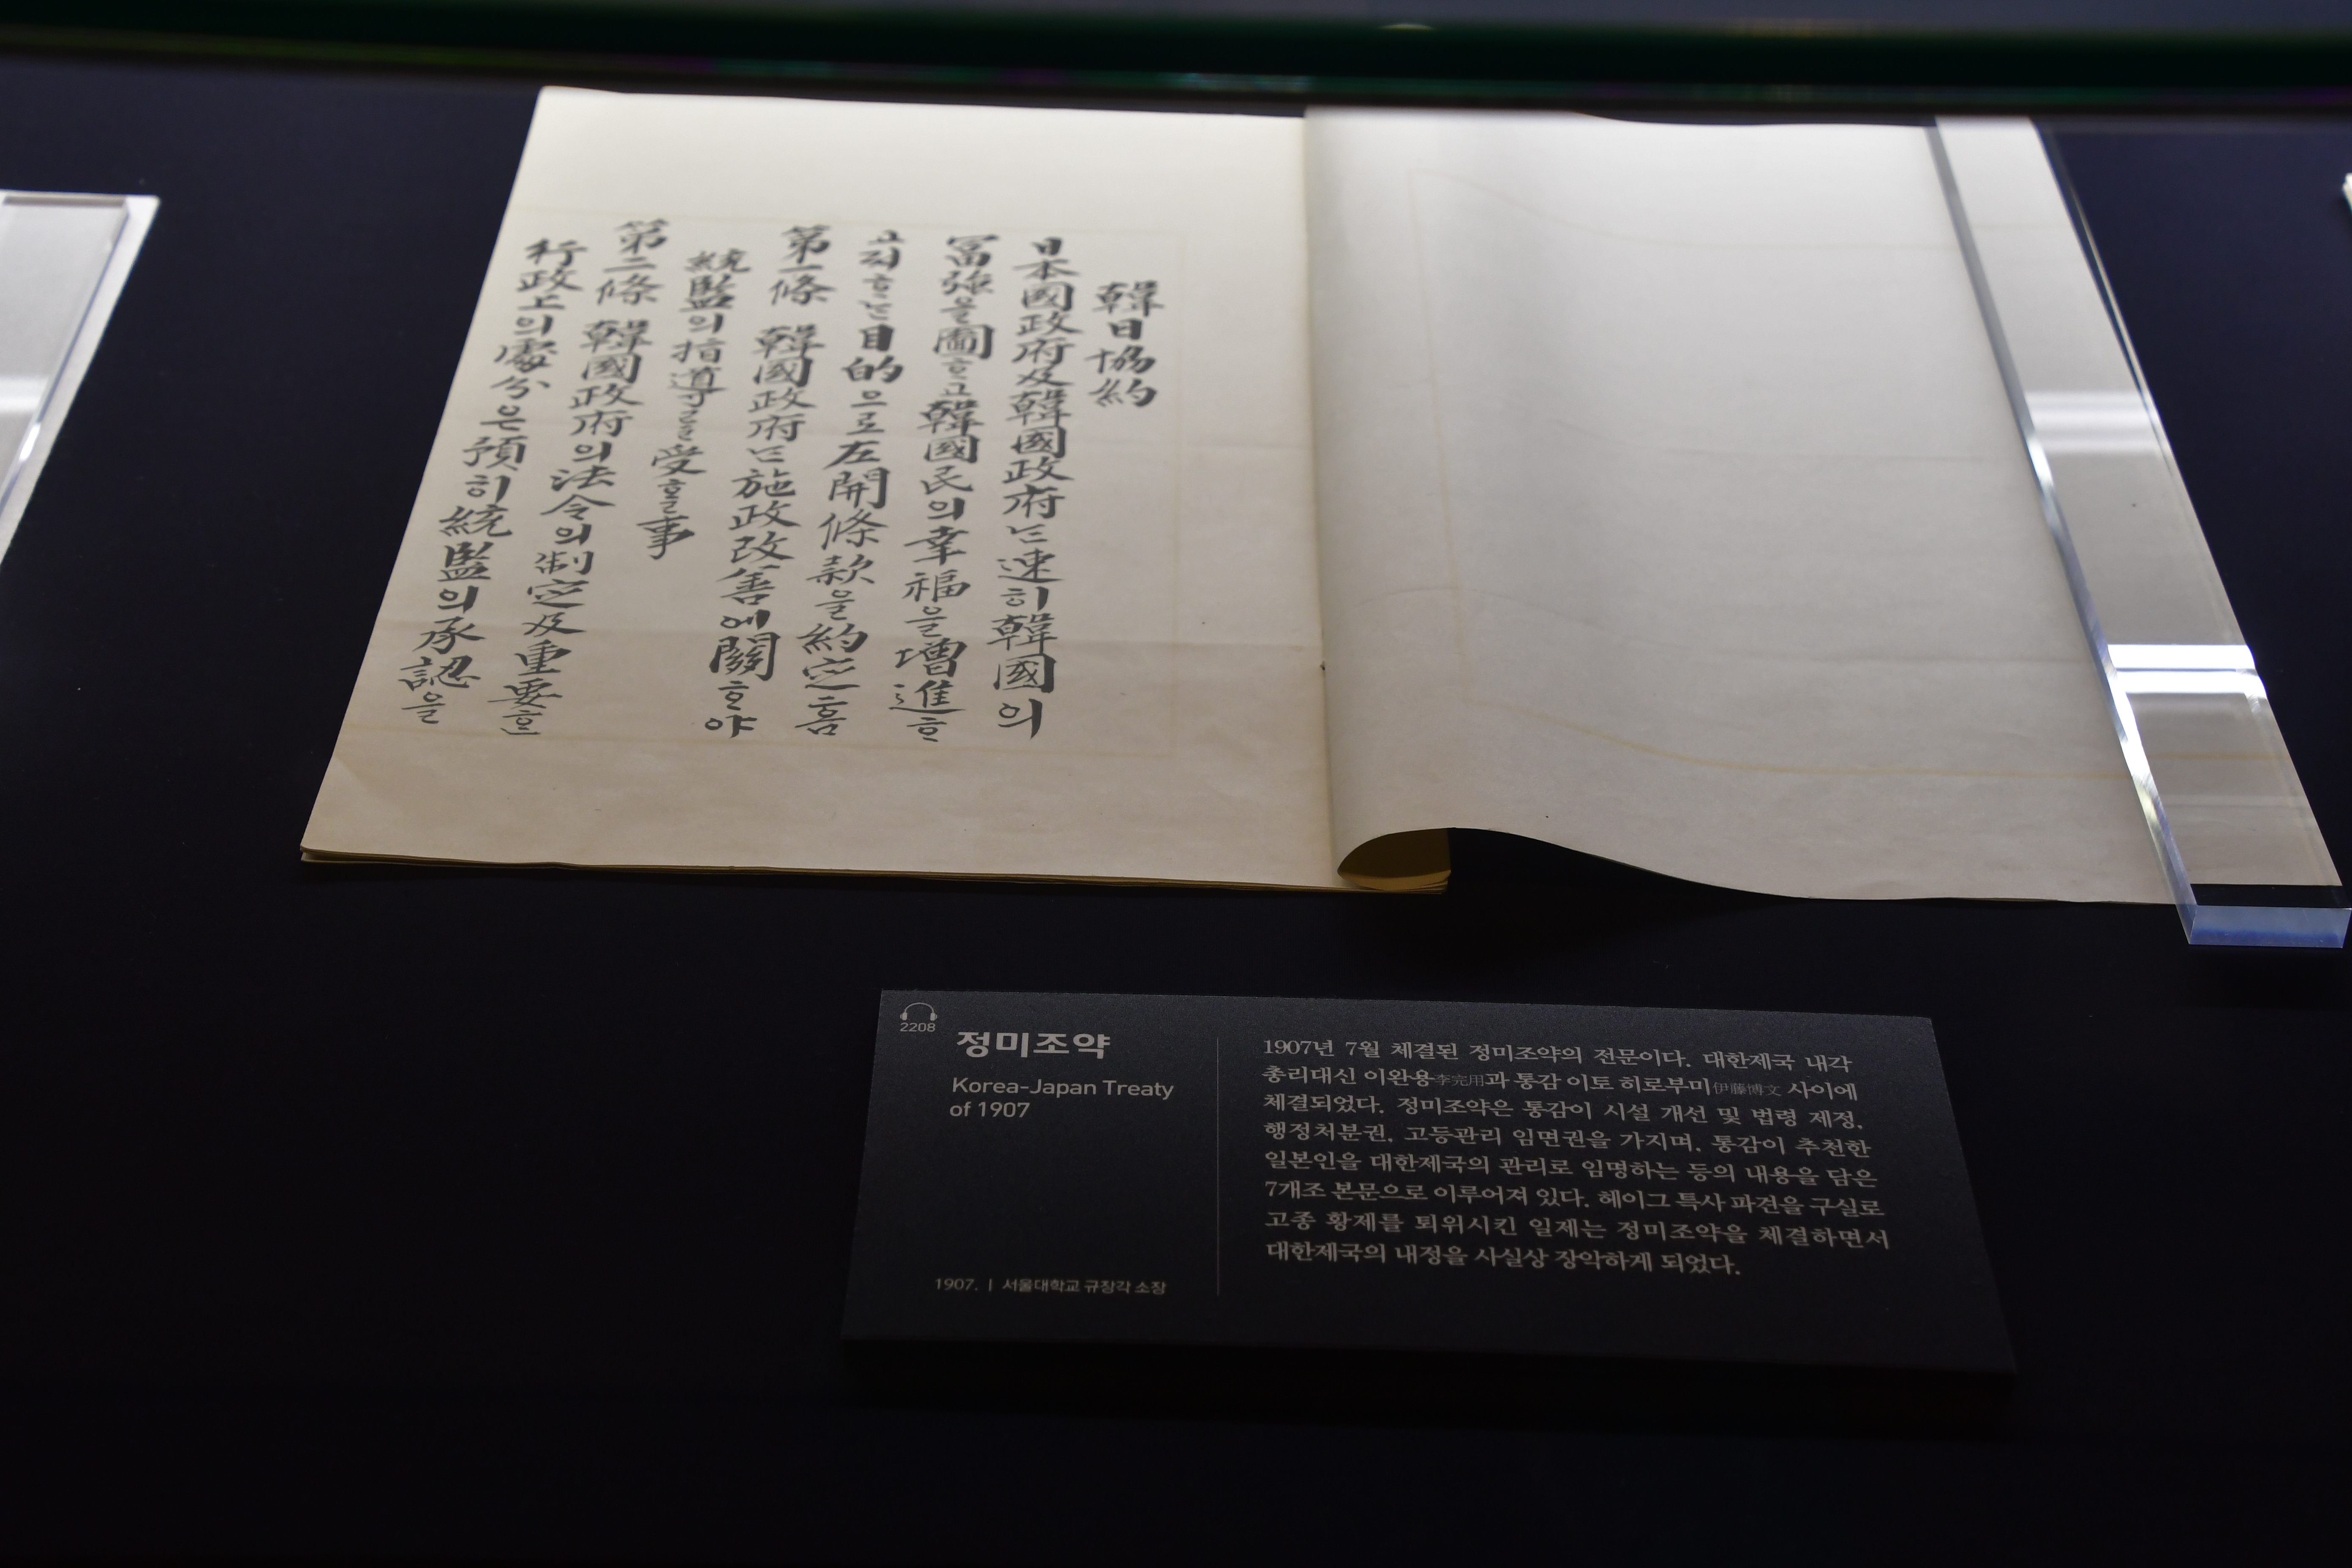 韓日協約
日本國政府及韓國政府는速히韓國의
富强을圖ᄒᆞ고韓國民의幸福을增進ᄒᆞ
고ᄌᆞᄒᆞ는目的으로左開條款을約定홈
第一條 韓國政府는施政改善에關ᄒᆞ야
統監의指導를受ᄒᆞᆯ事
第二條 韓國政府의法令의制定及重要ᄒᆞᆫ
行政上의處分은預히統監의承認을
2208
정미조약
Korea-Japan Treaty
of 1907
1907. | 서울대학교 규장각 소장
1907년 7월 체결된 정미조약의 전문이다. 대한제국 내각
총리대신 이완용李完用과 통감 이토 히로부미伊藤博文 사이에
체결되었다. 정미조약은 통감이 시설 개선 및 법령 제정,
행정처분권, 고등관리 임면권을 가지며, 통감이 추천한
일본인을 대한제국의 관리로 임명하는 등의 내용을 담은
7개조 본문으로 이루어져 있다. 헤이그 특사 파견을 구실로
고종 황제를 퇴위시킨 일제는 정미조약을 체결하면서
대한제국의 내정을 사실상 장악하게 되었다.